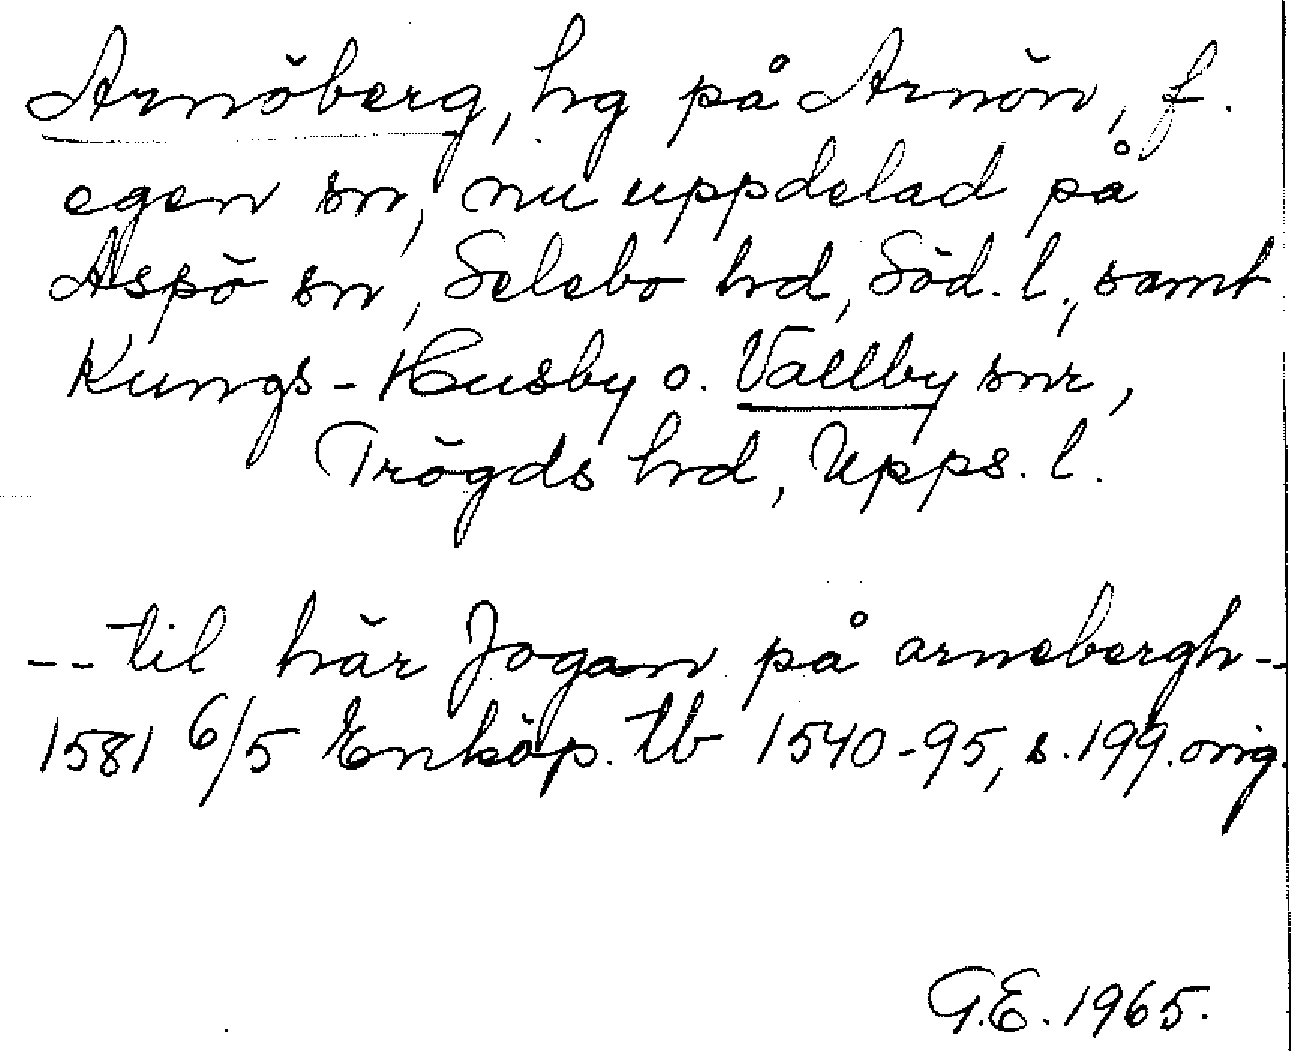 Arnöberg, hg på Arnön, f.
egen sn, nu uppdelad på
Aspö sn, Selebo hd, Söd. l., samt
Kungs-Husby o. Vallby snr,
Trögds hd, Upps. l.
-- til här Jogan på arnebergh --
1581 6/5 Enköp. tb 1540-95, s. 199. orig.
G.E. 1965.